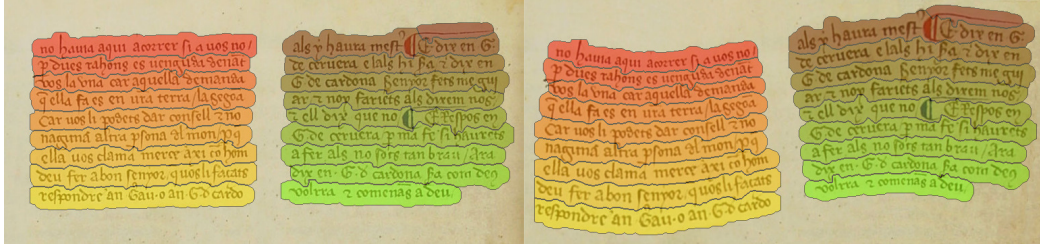 no hauia aqui acorrer si a uos no /
p dues rahons es uenguda denãt
uos la vna car aquella demanda
q̃ ella fa es en vra terra / la segõa
Car uos li podets dar consell ⁊ no
naguna altra psona del mon / p q̃
ella uos clama merce axi co hom
deu fer a bon senyor / quos li façats
respondre an Gau. o an .G. d cardo
als y haura mest' ¶ E dix en G.
de ceruera e lals hi sa ⁊ dix en
G. de cardona senyor fets me gui
ar ⁊ nos farets als direm nos
⁊ ell dix que no ¶ E Respos en
G. de ceruera p ma fe si haurets
a fer als no fos tan brau / Ara
dix en .G. d cardona sa com deg
volria ⁊ comenas a deu.
no hauia aqui acorrer si a uos no /
p dues rahons es uenguda denãt
uos la vna car aquella demanda
q̃ ella fa es en vra terra / la segõa
Car uos li podets dar consell ⁊ no
naguna altra psona del mon / p q̃
ella uos clama merce axi co hom
deu fer a bon senyor / quos li façats
respondre an Gau. o an .G. d cardo
als y haura mest' ¶ E dix en G.
de ceruera e lals hi sa ⁊ dix en
G. de cardona senyor fets me gui
ar ⁊ nos farets als direm nos
⁊ ell dix que no ¶ E Respos en
G. de ceruera p ma fe si haurets
a fer als no fos tan brau / Ara
dix en .G. d cardona sa com deg
volria ⁊ comenas a deu.